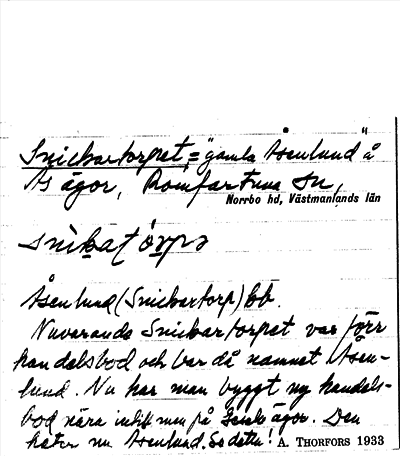 Snickartorpet, = "gamla Åsenlund" å
Ås ägor, Romfartuna Sn,
Norrbo hd, Västmanlands län
snìkat́órpə
Åsenlund (Snickartorp) bb.
Nuvarande Snickartorpet var förr
handelsbod och bar då namnet Åsen-
lund. Nu har man byggt ny handels-
bod nära intill men på ägor. Den
heter nu Åsenlund. Se detta!
A. THORFORS 1933